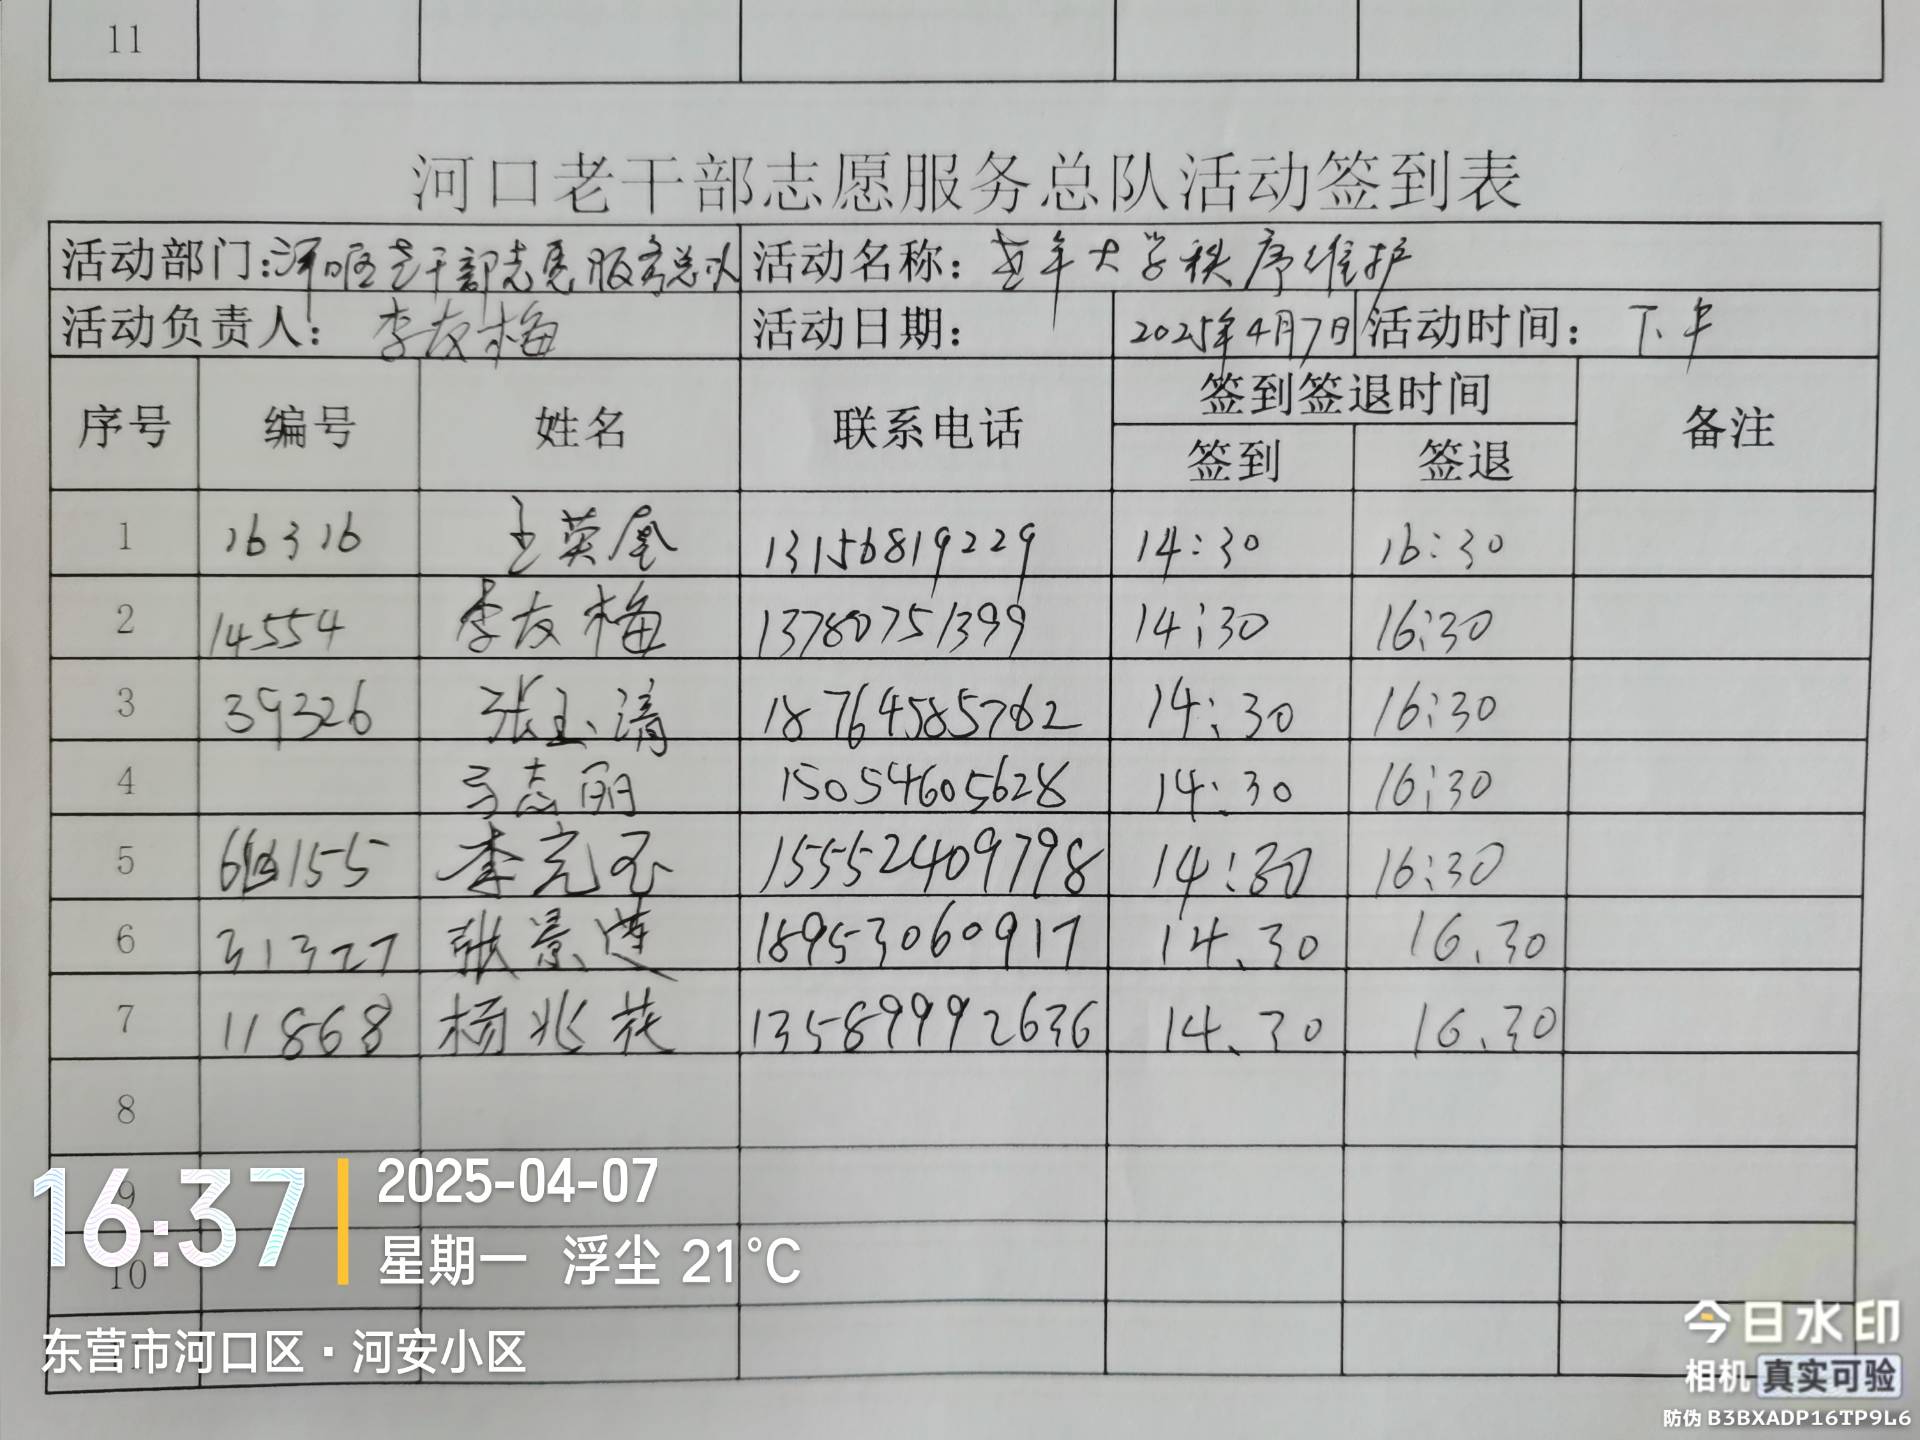 11
河口老干部志愿服务总队活动签到表
活动部门：河口区老干部志愿服务总队 活动名称：老年大学秩序维护
活动负责人：李友梅 活动日期： 2025年4月7日 活动时间：下午
序号 编号 姓名 联系电话 签到签退时间 备注
签到 签退
1 16316 王英凰 13156819229 14:30 16:30
2 14554 李友梅 13780751399 14:30 16:30
3 39326 张玉清 18764585762 14:30 16:30
4 马志丽 15054605628 14:30 16:30
5 155 李克玉 15552409798 14:30 16:30
6 31327 张景莲 18953060917 14.30 16.30
7 11868 杨兆花 13589992636 14.30 16.30
8
9
10
11
16:37
2025-04-07
星期一 浮尘 21℃
东营市河口区·河安小区
今日水印
相机 真实可验
防伪 B3BXADP16TP9L6